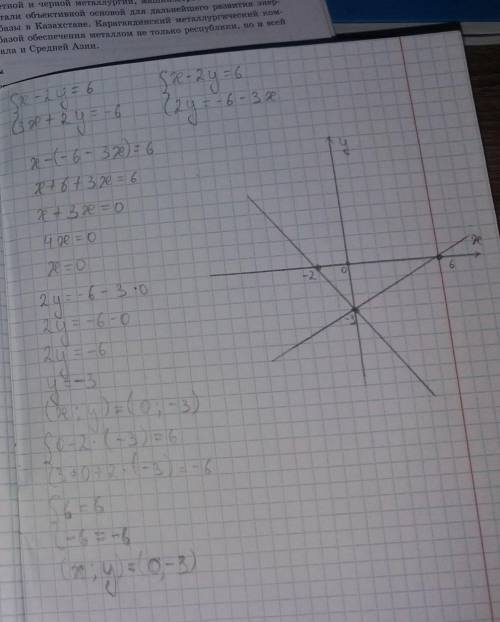 етной и черной металлургии, машиностро
тали объективной основой для дальнейшего развития энер-
базы в Казахстане. Карагандинский металлургический ком-
базой обеспечения металлом не только республики, но и всей
и Средней Азии.
{x-2y=6
3x+2y=-6
{x-2y=6
2y=-6-3x
x-(-6-3x)=6
x+6+3x=6
x+3x=0
4x=0
x=0
2y=-6-3·0
2y=-6-0
2y=-6
y=-3
(x;y)=(0;-3)
{0-2·(-3)=6
3·0+2·(-3)=-6
{6=6
-6=-6
(x;y)=(0;-3)
y
x
-2
0
6
-3